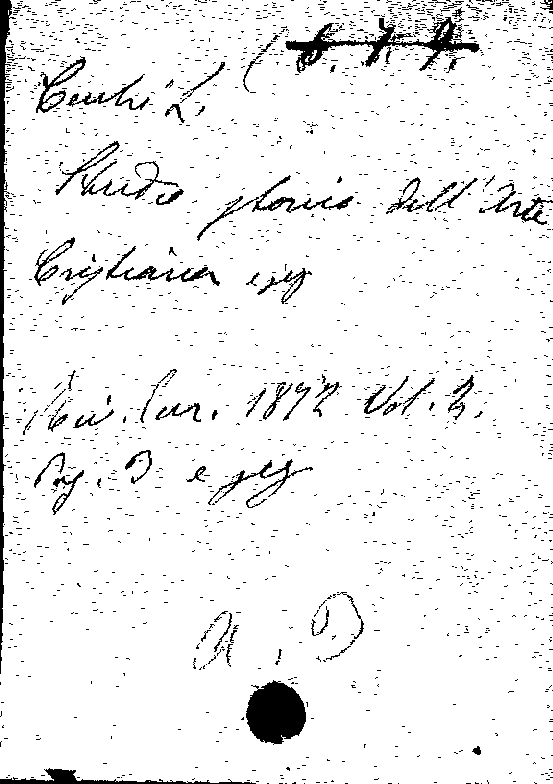 L.
Studio storico dell'Arte
Cristiana e seg
Riv. Eur. 1872 Vol. 3.
Pag. 3 e seg
A. B